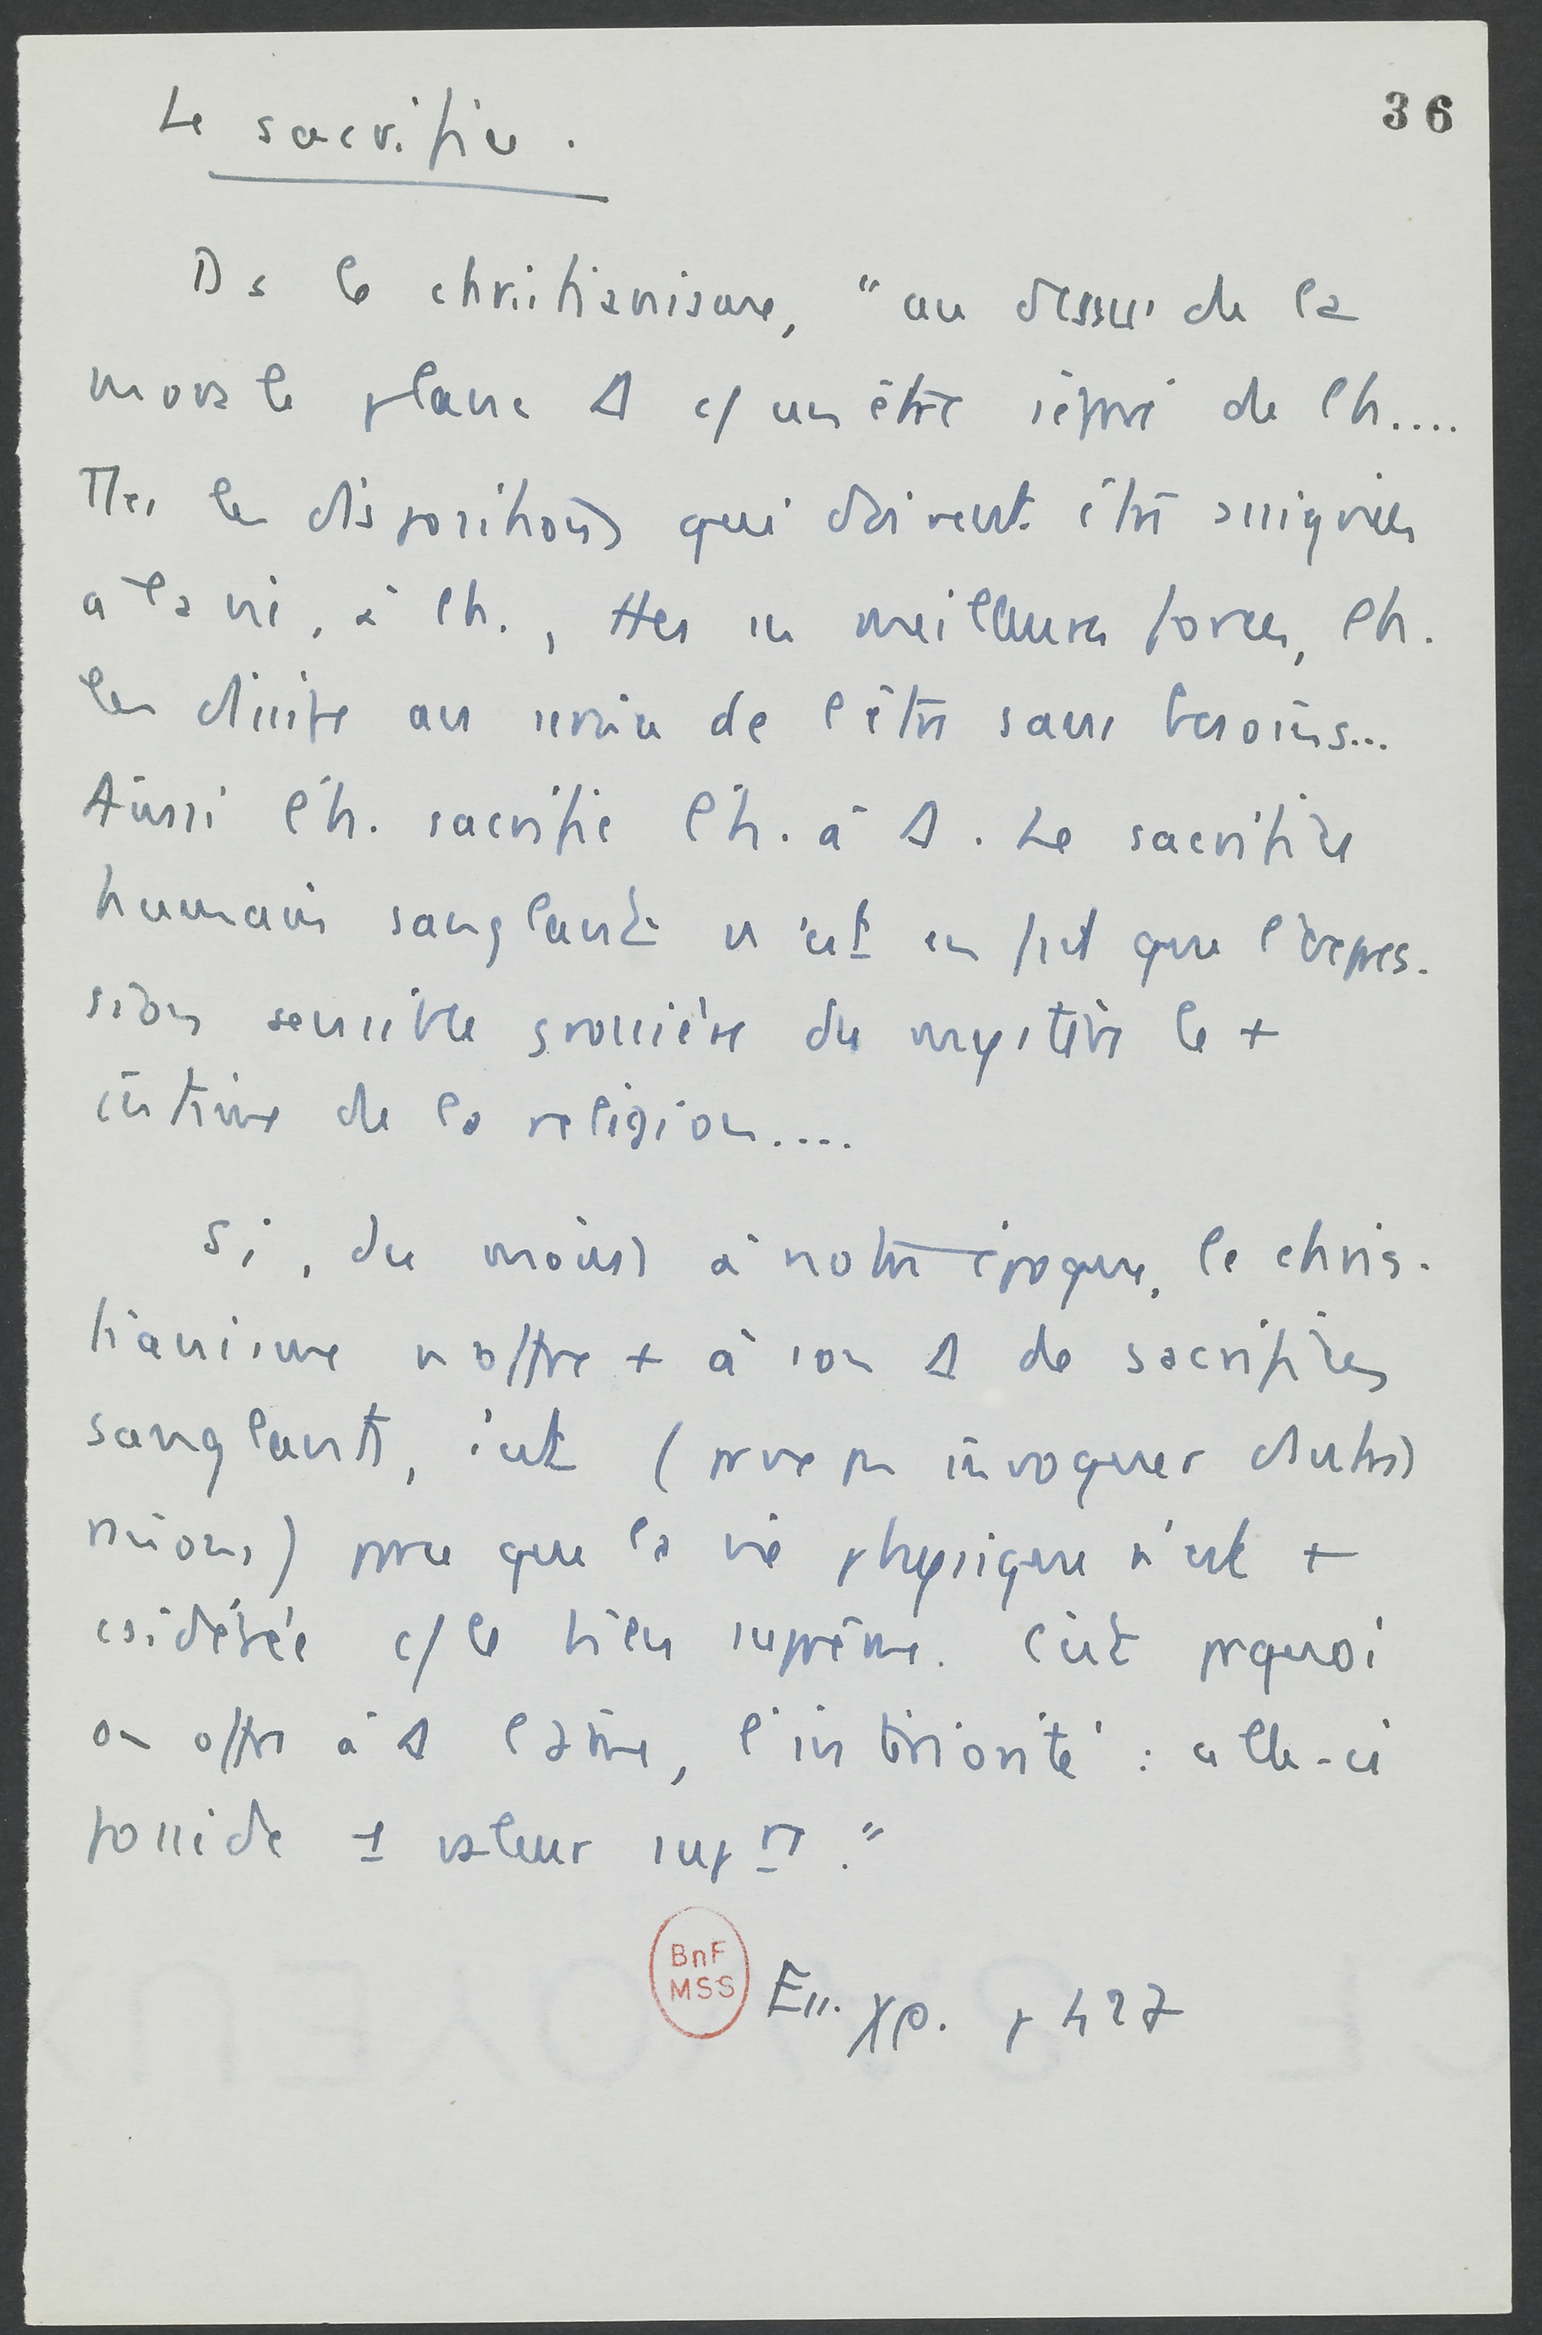 36
Le sacrifice.
Ds le christianisme, "au dessus de la
morale plane Δ c/ un être séparé de l'h....
Ttes les dispositions qui doivent être assignées
a la vie, à l'h., ttes ses meilleures forces, l'h.
les dissipe au service de l'être sans besoins...
Aussi l'h. sacrifie l'h. à Δ. Le sacrifice
humain sanglant n'est en fait que l'expres-
sion sensible grossière du mystère le +
intime de la religion....
Si, du moins à notre époque, le chris-
tianisme n'offre + à son Δ de sacrifices
sanglants, c'est (pr ne pas invoquer d'autres
raisons) parce que la vie physique n'est +
csidérée c/ le bien suprême. C'est prquoi
on offre à Δ l'âme, l'intériorité : celle-ci
possède 1 valeur supre."
BnF
MSS
Ess. χρ. p 427